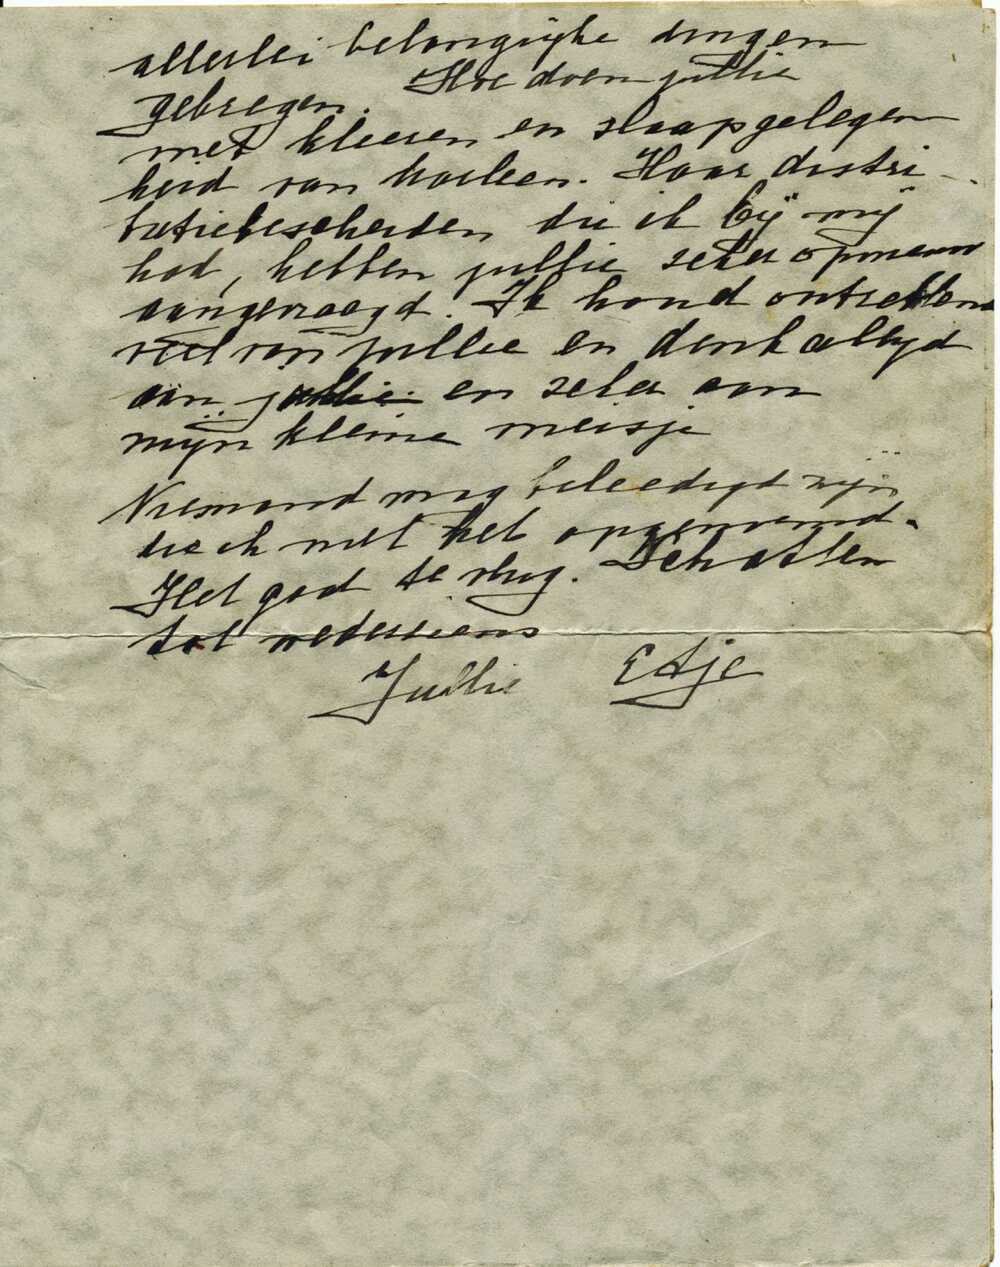 allerlei belangrijke dingen
gekregen. Hoe doen jullie
met kleeren en slaapgelegen
heid van Marleen. Haar distri -
butiebescheiden die ik bij mij
had, hebben jullie zeker opnieuw
aangevraagd. Ik houd ontzettend
veel van jullie en denk altijd
aan jullie en zeker aan
mijn kleine meisje
Niemand mag beleedigd zijn
die ik niet heb opgenoemd.
Het gaat te vlug. Schatten
tot wederziens
Jullie Etje